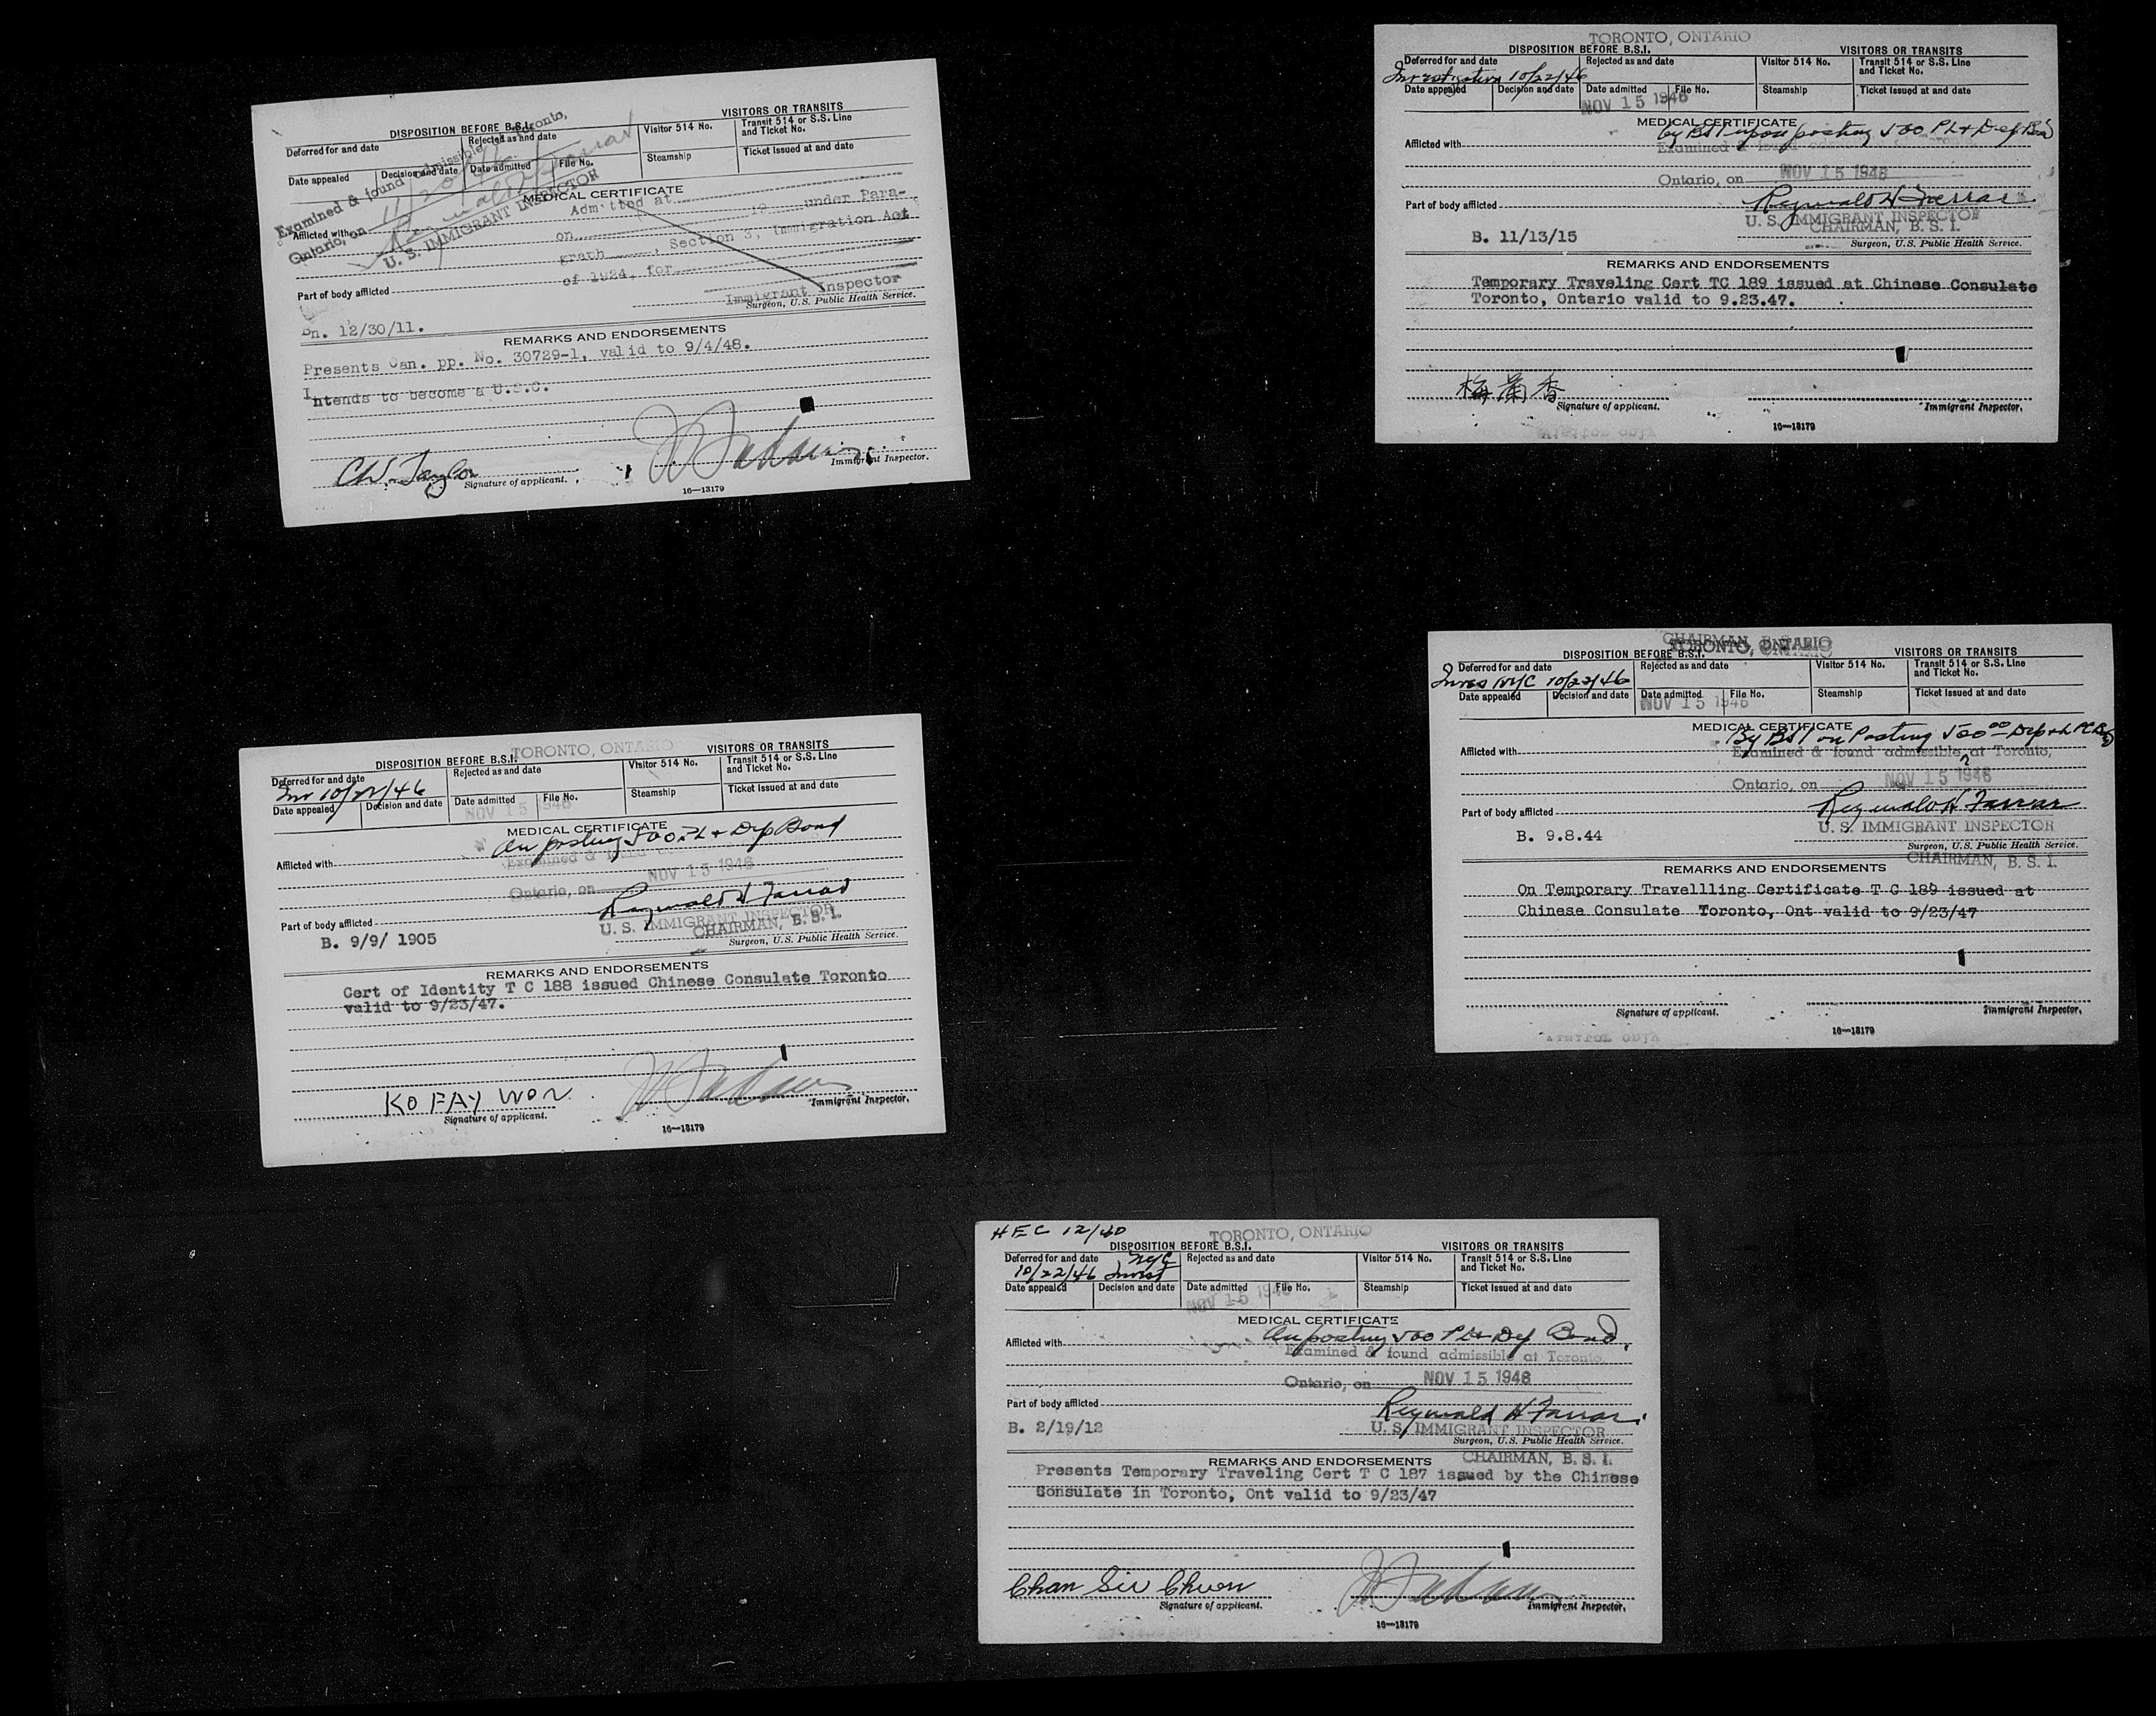 DISPOSITION BEFORE B.S.I.
VISITORS OR TRANSITS
Deferred for and date
Rejected as and date
Visitor 514 No.
Transit 514 or S.S. Line
and Ticket No.
Date appealed
Decision and date
Date admitted
File No.
Steamship
Ticket issued at and date
Examined & found admissible Toronto,
Ontario, on 11/20/46
U. S. IMMIGRANT INSPECTOR
MEDICAL CERTIFICATE
Afflicted with
Admitted at
on 19 under Para-
graph , Section 3, Immigration Act
of 1924, for
Part of body afflicted
Immigrant Inspector
Surgeon, U.S. Public Health Service.
Bn. 12/30/11.
REMARKS AND ENDORSEMENTS
Presents Can. pp. No. 30729-1, valid to 9/4/48.
Intends to become a U.S.C.
C.W. Taylor
Signature of applicant.
Immigrant Inspector.
16—13179
TORONTO, ONTARIO
DISPOSITION BEFORE B.S.I.
VISITORS OR TRANSITS
Deferred for and date
Rejected as and date
Visitor 514 No.
Transit 514 or S.S. Line
and Ticket No.
Investigation 10/22/46
Date appealed
Decision and date
Date admitted
File No.
Steamship
Ticket issued at and date
NOV 15 1946
MEDICAL CERTIFICATE
by BSI upon posting 500 PL & Dep Bond
Afflicted with
Examined & found
Ontario, on NOV 15 1946
Part of body afflicted
Reginald H Farrar
U. S. IMMIGRANT INSPECTOR
CHAIRMAN, B. S. I.
B. 11/13/15
Surgeon, U.S. Public Health Service.
REMARKS AND ENDORSEMENTS
Temporary Traveling Cert TC 189 issued at Chinese Consulate
Toronto, Ontario valid to 9.23.47.
梅蘭香
Signature of applicant.
Immigrant Inspector.
16—13179
TORONTO, ONTARIO
DISPOSITION BEFORE B.S.I.
VISITORS OR TRANSITS
Deferred for and date
Rejected as and date
Visitor 514 No.
Transit 514 or S.S. Line
and Ticket No.
Inv 10/22/46
Date appealed
Decision and date
Date admitted
File No.
Steamship
Ticket issued at and date
NOV 15 1946
MEDICAL CERTIFICATE
On posting 500 PL & Dep Bond
Afflicted with
Examined & found
Ontario, on NOV 15 1946
Part of body afflicted
Reginald H Farrar
U. S. IMMIGRANT INSPECTOR
CHAIRMAN, B. S. I.
B. 9/9/ 1905
Surgeon, U.S. Public Health Service.
REMARKS AND ENDORSEMENTS
Cert of Identity T C 188 issued Chinese Consulate Toronto
valid to 9/23/47.
KO FAY WON
Signature of applicant.
Immigrant Inspector.
16—13179
CHAIRMAN, B. S. I.
TORONTO, ONTARIO
DISPOSITION BEFORE B.S.I.
VISITORS OR TRANSITS
Deferred for and date
Rejected as and date
Visitor 514 No.
Transit 514 or S.S. Line
and Ticket No.
Inves NYC 10/22/46
Date appealed
Decision and date
Date admitted
File No.
Steamship
Ticket issued at and date
NOV 15 1946
MEDICAL CERTIFICATE
By BSI on Posting 500.00 Dep &
Afflicted with
Examined & found admissible at Toronto,
Ontario, on NOV 15 1946
Part of body afflicted
Reginald H Farrar
U. S. IMMIGRANT INSPECTOR
B. 9.8.44
Surgeon, U.S. Public Health Service.
CHAIRMAN, B. S. I.
REMARKS AND ENDORSEMENTS
On Temporary Travellling Certificate T C 189 issued at
Chinese Consulate Toronto, Ont valid to 9/23/47
Signature of applicant.
Immigrant Inspector.
16—13179
HEC 12/40
TORONTO, ONTARIO
DISPOSITION BEFORE B.S.I.
VISITORS OR TRANSITS
Deferred for and date
Rejected as and date
Visitor 514 No.
Transit 514 or S.S. Line
and Ticket No.
NYC
10/22/46 Invest
Date appealed
Decision and date
Date admitted
File No.
Steamship
Ticket issued at and date
NOV 15 1946
MEDICAL CERTIFICATE
On posting 500 PL & Dep Bond
Afflicted with
Examined & found admissible at Toronto
Ontario, on NOV 15 1946
Part of body afflicted
Reginald H Farrar
B. 2/19/12
U. S. IMMIGRANT INSPECTOR
Surgeon, U.S. Public Health Service.
REMARKS AND ENDORSEMENTS
CHAIRMAN, B. S. I.
Presents Temporary Traveling Cert T C 187 issued by the Chinese
Consulate in Toronto, Ont valid to 9/23/47
Chan Siv Chwen
Signature of applicant.
Immigrant Inspector.
16—13179